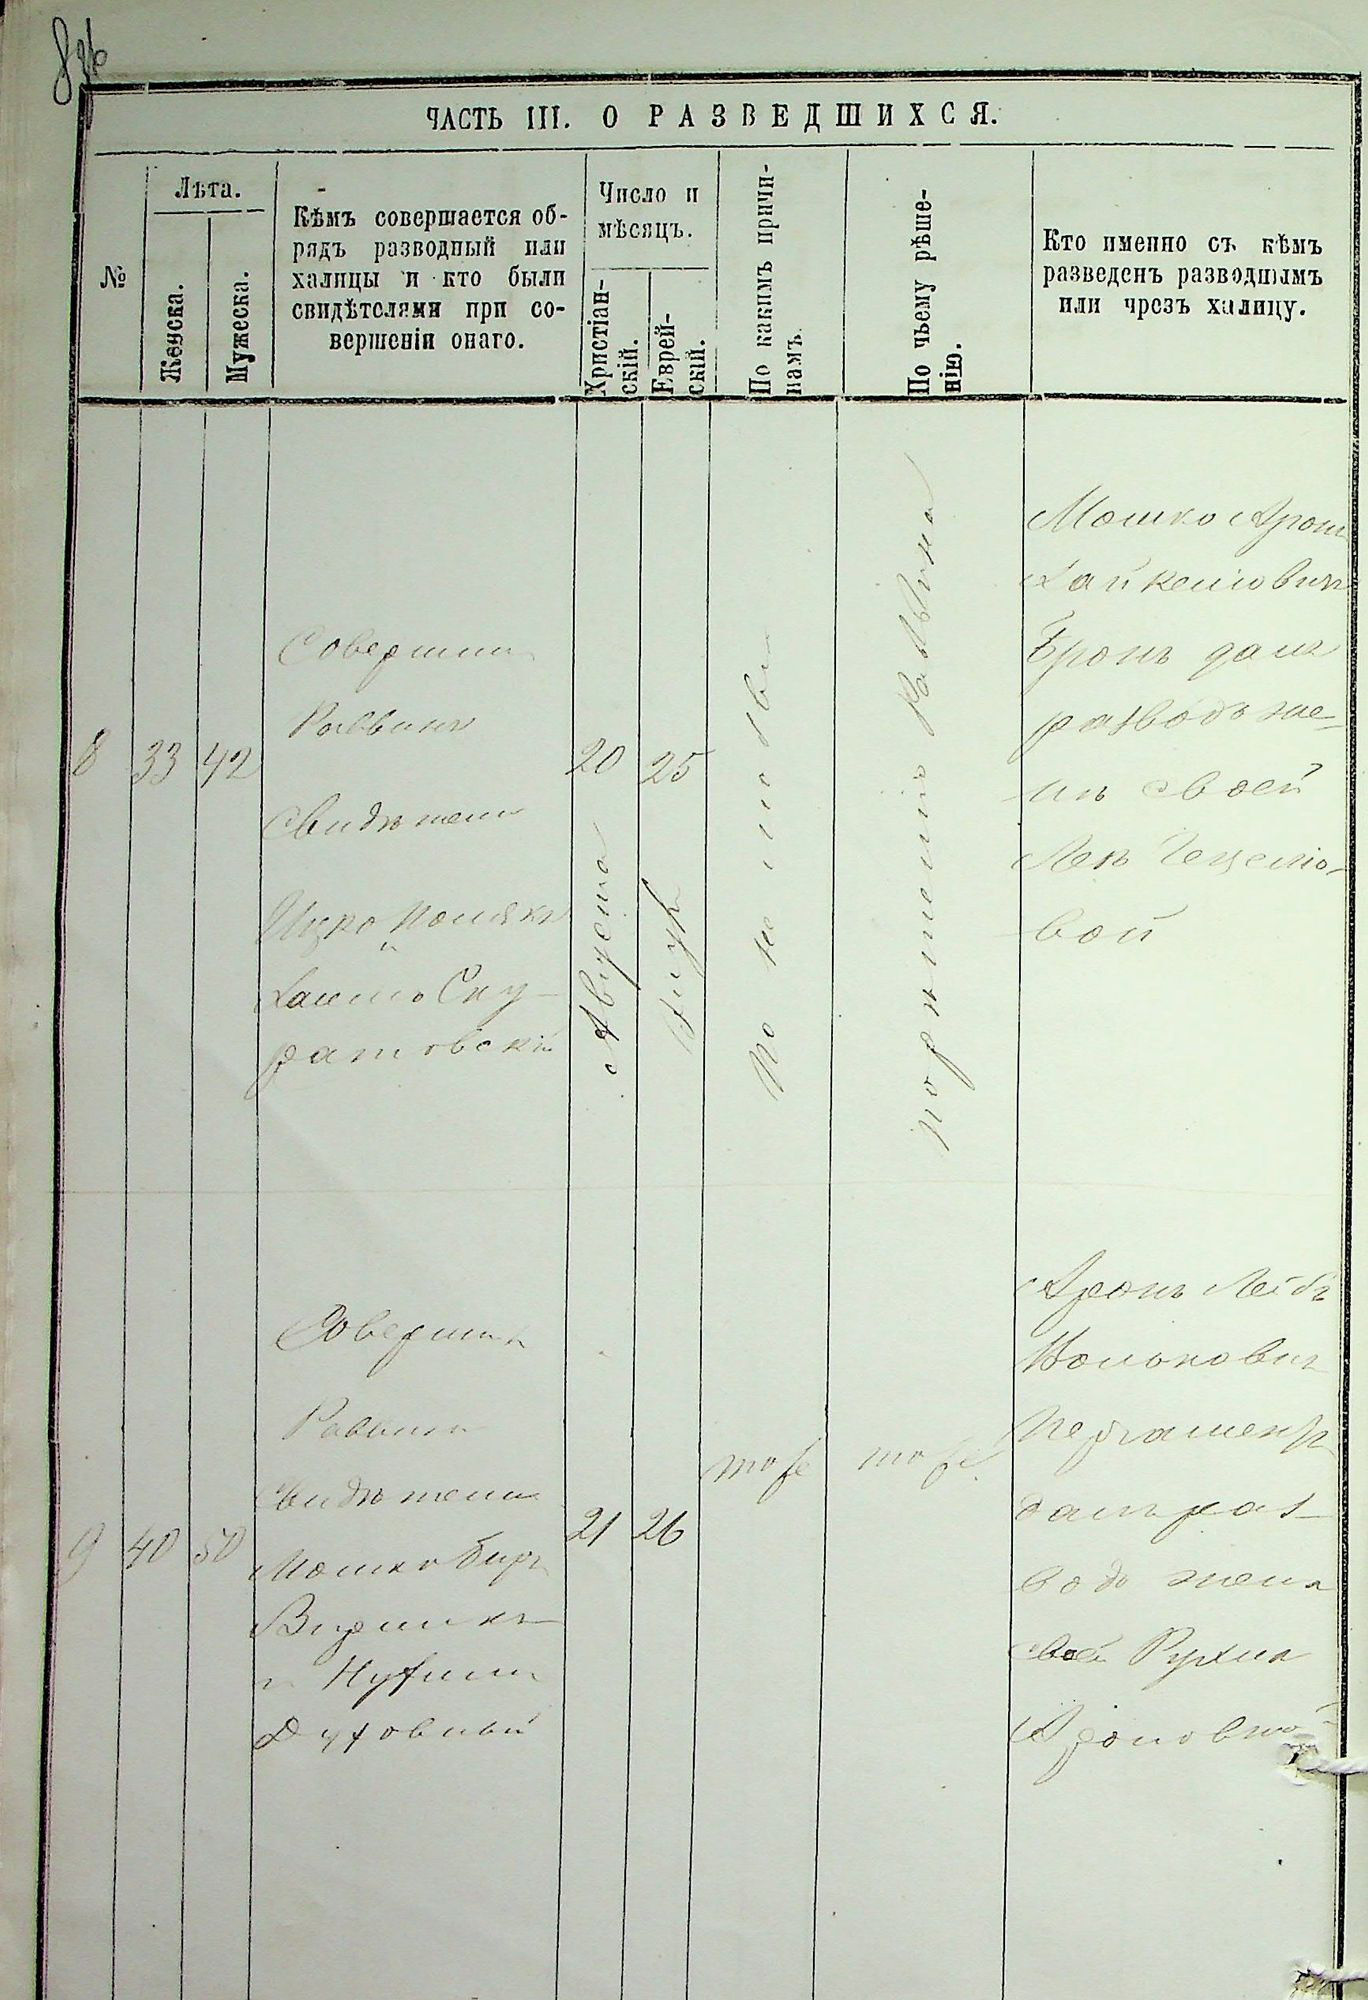 ЧАСТЬ III. О РАЗВЕДШИХСЯ.
№
Лѣта.
Женска.
Мужеска.
Кѣмъ совершается об-
рядъ разводный или
халицы и кто были
свидѣтелями при со-
вершеніи онаго.
Число и
мѣсяцъ.
Христіан-
скій.
Еврей-
скій.
По какимъ причи-
намъ.
По чьему рѣше-
нію.
Кто именно съ кѣмъ
разведенъ разводнымъ
или чрезъ халицу.
8
33
42
Совершил
Раввинъ
Свидѣтели
Ицко Полякъ
и
Хаимъ Ску-
ратовскій
20
Августа
25
По не любви
По рѣшенію Раввина
Мошко Арон
Хайкелiовичъ
далъ
разводъ же-
нѣ своей
Леѣ
вой
9
40
50
Совершилъ
Раввинъ
Свидѣтели
Мошко Беръ
и Нухимъ
Духовный
21
26
тоже
тоже
Аронъ Лейбъ
Вольковичъ
далъ раз-
водъ жена
своей Рухла
Ароновной